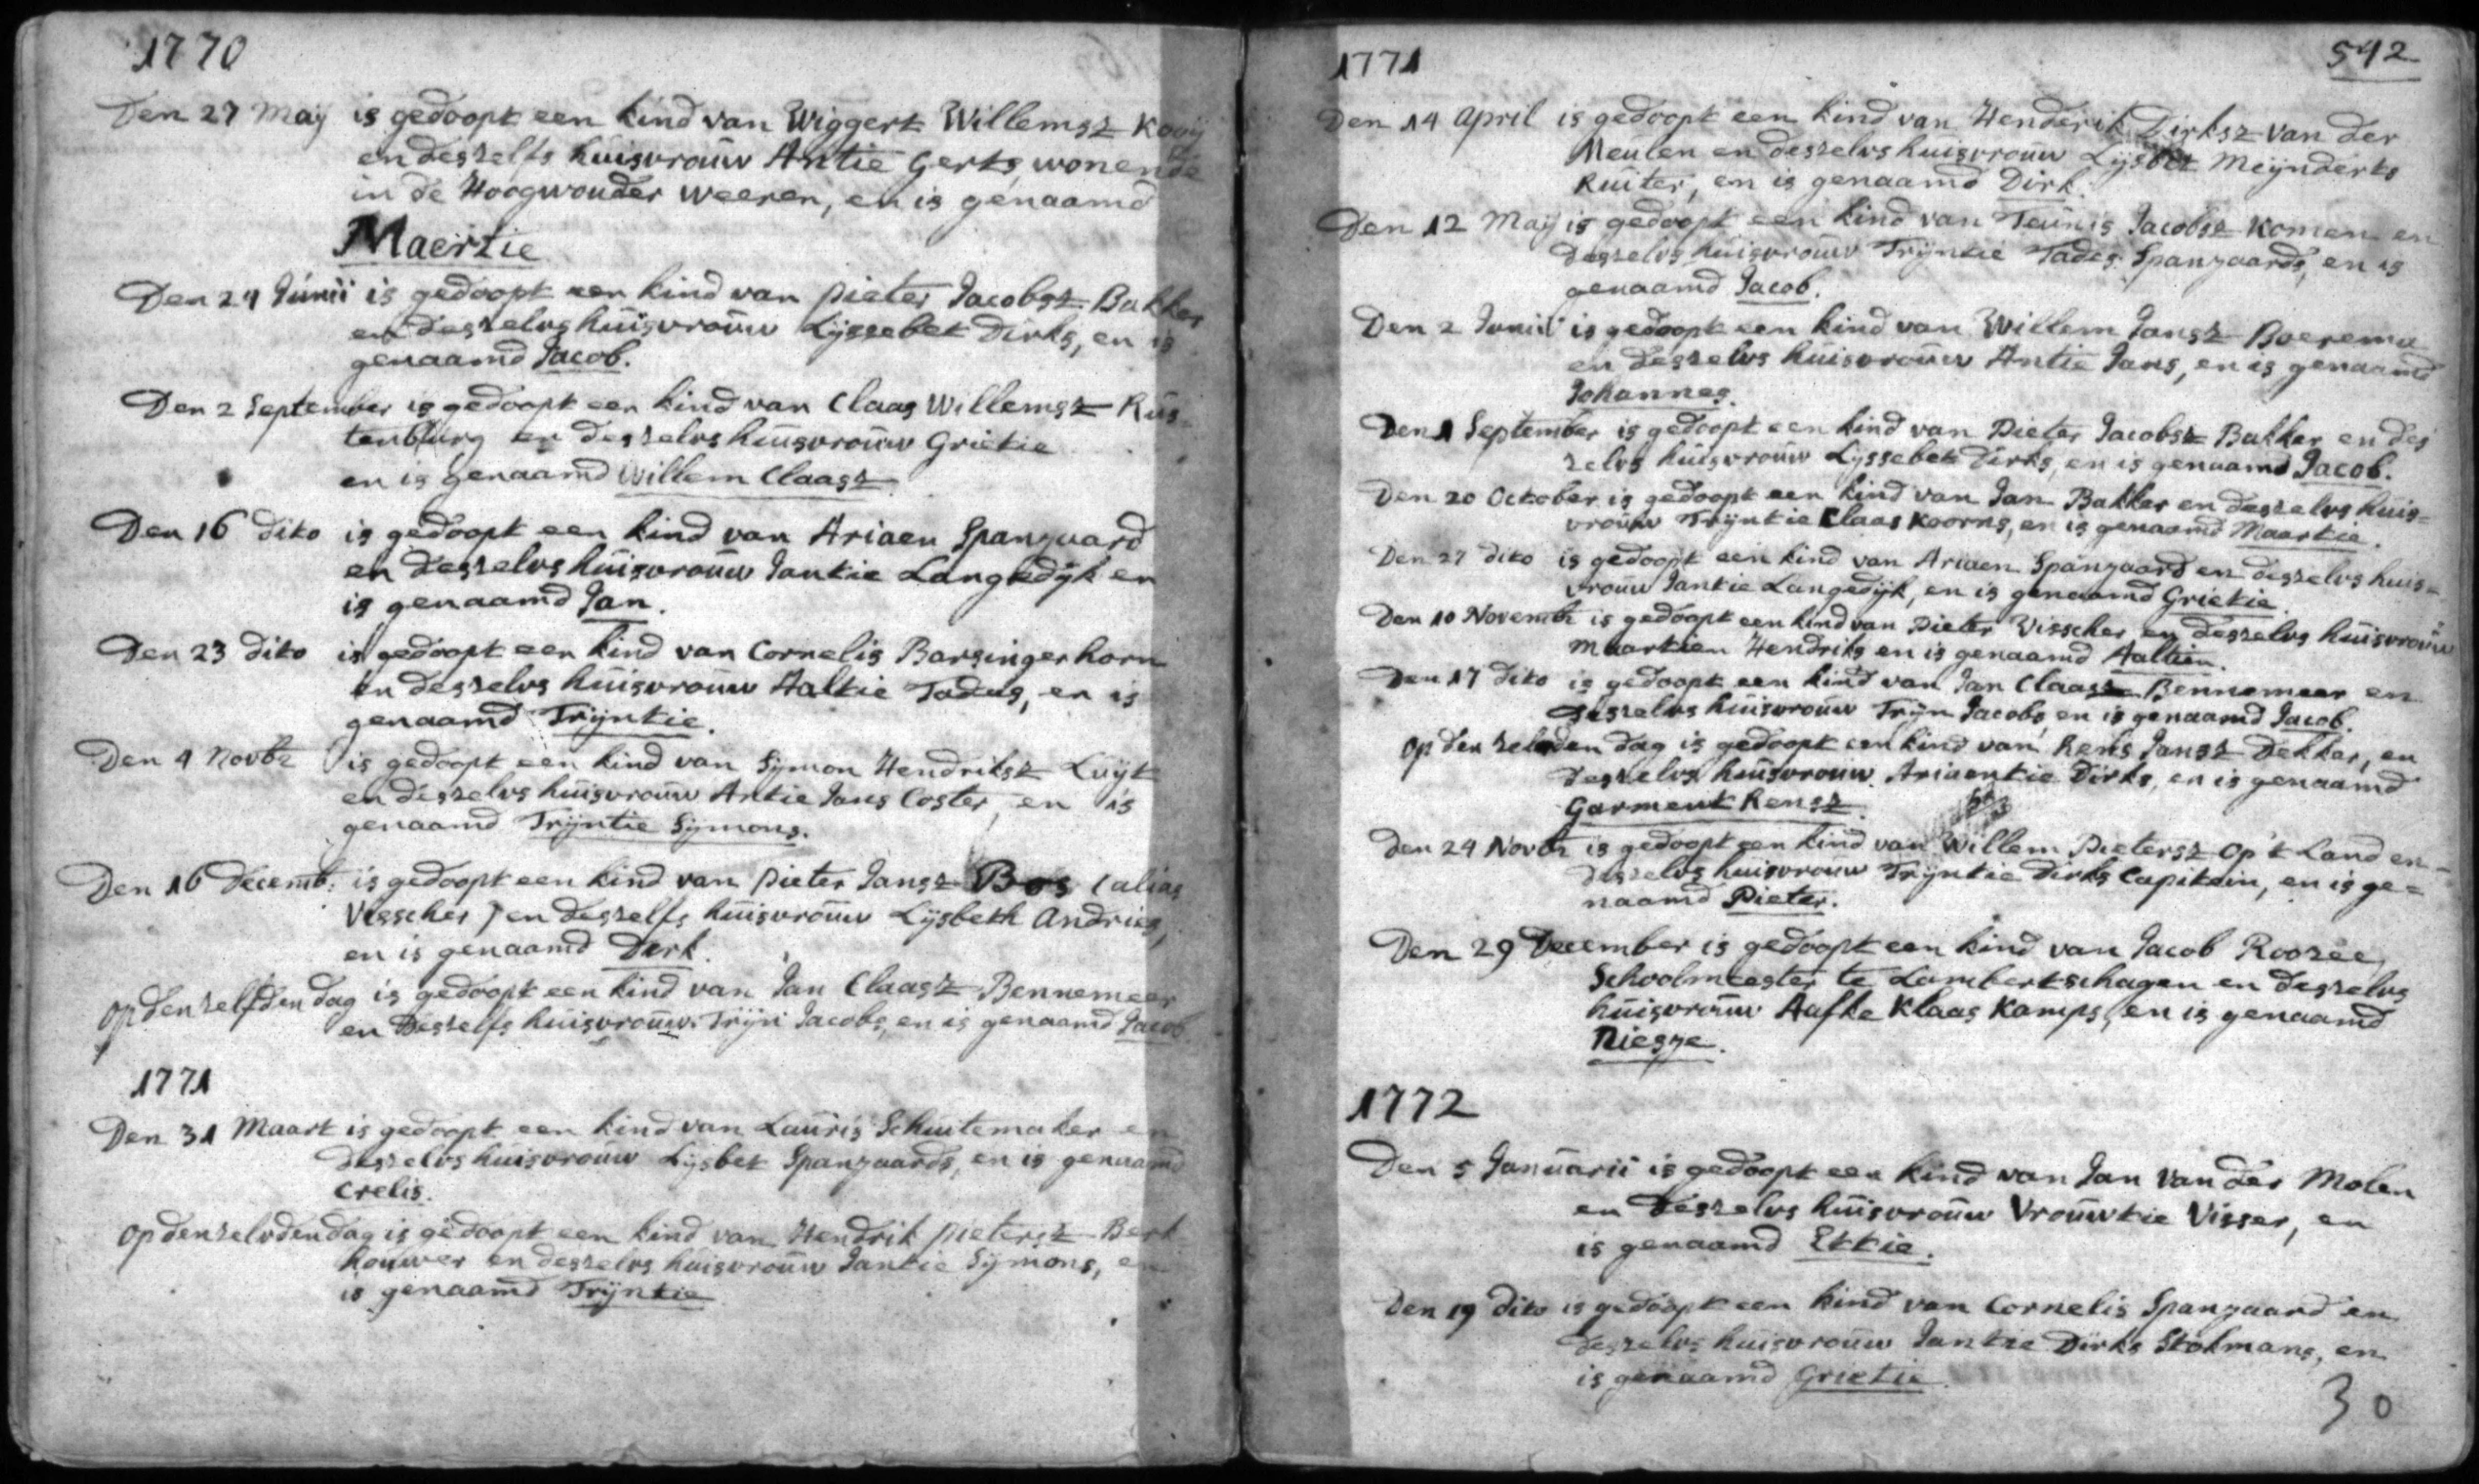 1770
Den 27 Maij is gedoopt een kind van Wiggert Willemsz Kooij
en deszelfs huisvrouw Antie Gerts, wonende
in de Hoogwouder weeren, en is genaamd
Maertie
Den 24 Junii is gedoopt een kind van Pieter Jacobsz Bakker
en deszelvs huisvrouw Lijssebet Dirks, en is
genaamd Jacob.
Den 2 September is gedoopt een kind van Claas Willemsz Rus-
tenburg en deszelvs huisvrouw Grietie
en is genaamd Willem Claasz
Den 16 dito is gedoopt een kind van Ariaen Spanjaard
en deszelvs huisvrouw Jantie Langedijk en
is genaamd Jan.
Den 23 dito is gedoopt een kind van Cornelis Barsingerhorn
en deszelvs huisvrouw Aaltie Tades, en is
genaamd Trijntie.
Den 4 Novbr is gedoopt een kind van Sijmon Hendriksz Luijt
en deszelvs huisvrouw Antie Jans Coster, en is
genaamd Trijntie Sijmons.
Den 16 Decemb: is gedoopt een kind van Pieter Jansz Bos (alias
Visscher) en deszelfs huisvrouw Lijsbeth Andries,
en is genaamd Dirk.
op denzelfden dag is gedoopt een kind van Jan Claasz Bennemeer
en deszelfs huisvrouw Trijn Jacobs, en is genaamd Jacob
1771
Den 31 Maart is gedoopt een kind van Lauris Schuitemaker en
deszelvs huisvrouw Lijsbet Spanjaards, en is genaamd
Crelis.
op denzelvden dag is gedoopt een kind van Hendrik Pietersz Berk
houwer en deszelvs huisvrouw Jantie Sijmons, en
is genaamd Trijntie
1771 542
Den 14 April is gedoopt een kind van Henderik Dirksz van der
Meulen en deszelvs huisvrouw Lijsbet Meijnderts
Ruiter, en is genaamd Dirk.
Den 12 Maij is gedoopt een kind van Teunis Jacobsz Komen en
deszelvs huisvrouw Trijntie Tades Spanjaards, en is
genaamd Jacob.
Den 2 Junii is gedoopt een kind van Willem Jansz Boerema
en deszelvs huisvrouw Antie Jans, en is genaamd
Johannes.
Den 1 September is gedoopt een kind van Pieter Jacobsz Bakker en des
zelvs huisvrouw Lijssebet Dirks, en is genaamd Jacob.
Den 20 October is gedoopt een kind van Jan Bakker en deszelvs huis-
vrouw Trijntie Claas Koorns, en is genaamd Maartie.
Den 27 dito is gedoopt een kind van Ariaen Spanjaard en deszelvs huis-
vrouw Jantie Langedijk, en is genaamd Grietie.
Den 10 Novembr is gedoopt een kind van Pieter Visscher en deszelvs huisvrouw
Maartien Hendriks en is genaamd Aaltien.
Den 17 dito is gedoopt een kind van Jan Claasz Bennemeer en
deszelvs huisvrouw Trijn Jacobs en is genaamd Jacob
op den zelvden dag is gedoopt een kind van Rens Jansz Dekker, en
deszelvs huisvrouw Ariaentie Dirks, en is genaamd
Garment Rensz.
Den 24 Novbr is gedoopt een kind van Willem Pietersz Op 't Land en
deszelvs huisvrouw Trijntie Dirks Capitein, en is ge-
naamd Pieter.
Den 29 December is gedoopt een kind van Jacob Roozee,
Schoolmeester te Lambertschagen en deszelvs
huisvrouw Aafke Klaas Kamps, en is genaamd
Niesje.
1772
Den 5 Januarii is gedoopt een kind van Jan van der Molen
en deszelvs huisvrouw Vrouwtie Visser, en
is genaamd Ettie.
Den 19 dito is gedoopt een kind van Cornelis Spanjaard en
deszelvs huisvrouw Jantie Dirks Stokmans, en
is genaamd Grietie.
30